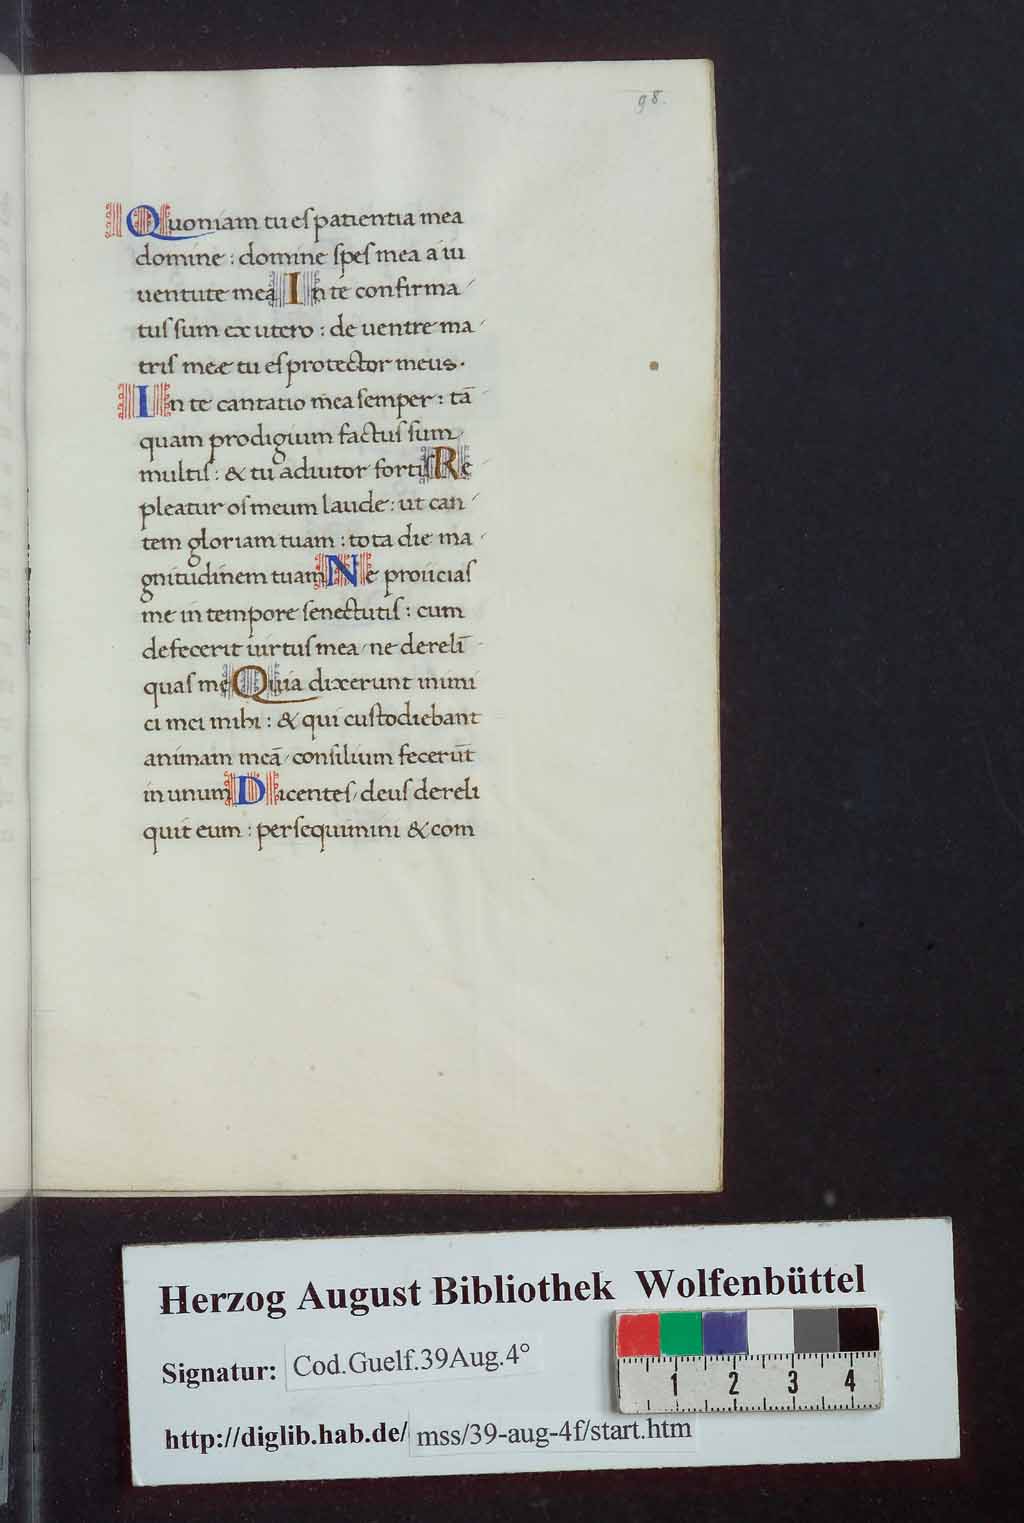 98.
Quoniam tu es patientia mea
domine : domine spes mea a iu
uentute mea In te confirma
tus sum ex utero : de uentre ma
tris meae tu es protector meus.
In te cantatio mea semper : tā
quam prodigium factus sum
multis : & tu adiutor fortis Re
pleatur os meum laude : ut can
tem gloriam tuam : tota die ma
gnitudinem tuam Ne proiicias
me in tempore senectutis : cum
defecerit uirtus mea / ne derelī
quas me Quia dixerunt inimi
ci mei mihi : & qui custodiebant
animam meā / consilium fecerūt
in unum Dicentes / deus dereli
quit eum : persequimini & com
Herzog August Bibliothek Wolfenbüttel
Signatur: Cod.Guelf.39Aug.4°
1 2 3 4
http://diglib.hab.de/ mss/39-aug-4f/start.htm